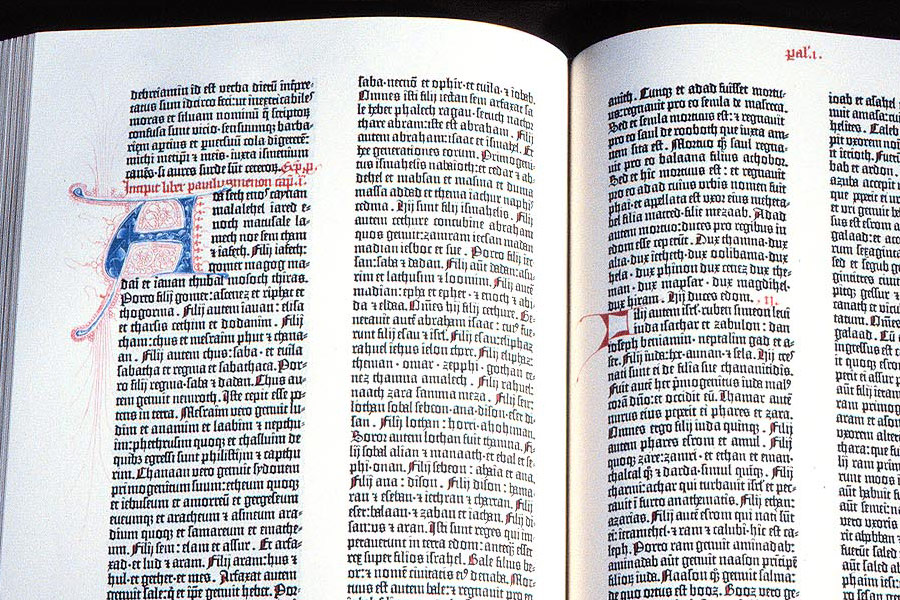 debreiamin id est verba dierū inspre-
tatus sum idcirco feci: ut inextricabiles
moras et silvam nominū q̄ scriptoꝝ
confusa sunt vicio · sensuumq; barba-
riem apertius et per versuū cola digererē:
michi metipsi et meis · iuxta ismenium
canēs · si aures surde sūt ceteroꝝ. Exp. p.
Incipit liber paralypomenon cap. i.
Adā seth enos caynan
malalehel iared e-
noch matusale la-
mech noe sem cham
et iafeth. Filij iafeth:
gomer magog ma-
dai et iavan thubal mosoch thiras.
Porro filij gomer: ascenez et riphat et
thogorma. Filij autem iavan: elisa
et tharsis cethim et dodanim. Filij
cham: chus et mesraim phut et chana-
an. Filij autem chus: saba · et evila
sabatha et regma et sabathaca. Por-
ro filij regma: saba et dadan. Chus au-
tem genuit nemroth. Iste cepit esse po-
tens in terra. Mesraim vero genuit lu-
dim et anamim et laabim et nepthu-
im: phethrusim quoq; et chasluim: de
quibꝰ egressi sunt philistijm et capthu
rim. Chanaan vero genuit sydonem
primogenitum suum: etheum quoq;
et iebuseum et amorreū et gergeseum
eveumq; et aracheum et asineum ara-
dium quoq; et samareum et emathe-
um. Filij sem: elam et assur. Et arfa-
xad · et lud et aram. Filij aram: hus et
hul · et gether · et mes. Arfaxat autem
genuit sale: q̄ et ip̄e genuit heber. Por-
saba · necnō et ophir · et evila · et iobab.
Omnes isti filij iectan sem arfaxat sa
le heber phalech ragau · seruch nachor
thare abram: iste est abraham. Filij
autem abraham: isaac et ismahel. Et
he generationes eorum. Primogeni-
tus ismahelis nabaioth: et cedar et ab-
dehel et mabsan et masma et duma
massa added et thema iachur naphis
cedma. Hij sunt filij ismahelis. Filij
autem cethure concubine abraham
quos genuit: zamram iecsan madan
madian iesboc et sue. Porro filij iec
san: saba et dadan. Filij aūt dadan: asu-
rim et lathusim et loomim. Filij autē
madian: epha et epher · et enoch et abi-
da et eldaa. Om̄es hij filij cethure. Ge-
neravit autē abraham isaac: cuiꝰ fue-
runt filij esau et isrl̄. Filij esau: eliphaz
rahuel iehus ielom chore. Filij eliphaz:
theman · omar · zepphi · gothan ce-
nez thamna amalech. Filij rahuel:
naath zara samma meza. Filij seir:
lothan sobal sebeon · ana · dison · eser di-
san. Filij lothan: horri · ahohimam.
Soror autem lothan fuit thamna. Fi-
lij sobal alian et manaath · et ebal et se-
phi · onam. Filij sebeon: ahaia et ana.
Filij ana: dison. Filij dison: hama-
ran et eseban · et iethran et charran. Filij
eser: balaan · et zaban et iachan. Filij di-
san: us et aran. Isti sunt reges qui im-
peraverunt in terra edom: anteq̄ esset
rex super filios israhel. Bale filius be-
or: et nomē civitatis eiꝰ denaba. Mor-
tuus est autem bale: et regnavit pro eo
pal'. i.
avith. Cumq; et adad fuisset mortu-
us: regnavit pro eo semla de masreca.
Sed et semla mortuus est: et regnavit
pro eo saul de rooboth que iuxta am-
nem sita est. Mortuo q̄ saul regna-
vit pro eo balaana filius achobor.
Sed et hic mortuus est: et regnavit
pro eo adad cuius urbis nomen fuit
phai · et appellata est uxor eius meheta-
bel filia matred · filie mezaab. Adad
autem mortuo: duces pro regibus in
edom esse ceperūt. Dux thamna · dux
alva · dux ietheth · dux oolibama · dux
hela · dux phinon dux cenez dux the-
man · dux mapsar · dux magdihel ·
dux hiram. Hij duces edom. II.
Filij autem isrl̄: ruben simeon levi
iuda isachar et zabulon: dan
ioseph beniamin · neptalim gad et a-
ser. Filij iuda: her · aunan · et sela. Hij tres
nati sunt ei de filia sue chananitidis.
Fuit autē her p̄mogenitus iuda malꝰ
coram dn̄o: et occidit eū. Thamar autē
nurus eius peperit ei phares et zara.
Omnes ergo filij iuda quinq;. Filij
autem phares: esrom et amul. Filij
quoq; zare: zamri · et ethan et eman ·
chalcal q̄ et darda · simul quinq;. Filij
charmi: achar qui turbavit isrl̄ et pec-
cavit ī furto anathematis. Filij ethan:
azarias. Filij autē esrom qui nati sūt
ei: ieramehel · et ram et calubi · hic est ca-
leph. Porro ram genuit aminadab:
aminadab aūt genuit naason p̄ncipē
filioꝝ iuda. Naason q̄ genuit salma:
de quo ortus est booz. Booz vero ge-
ioab et asahel
nuit amasa: cui
hesites. Caleb